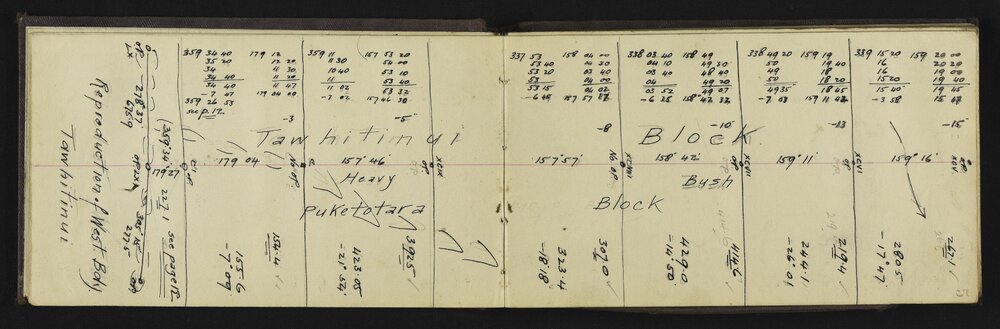 Reproduction of West Bdy
Tawhitinui
359 34 40
35 20
34
34 40
-7 47
359 26 53
see p.12
179 12
12 20
11 30
11 20
11 47
179 04 00
-3
359 11
11 30
10 40
11
11 02
-7 02
157 53 20
54 00
53 10
53 40
53 32
157 46 30
-5
337 53
53 40
53 20
53
53 15
158 04 00
04 30
03 40
04 00
04 02
-8
338 03 40
04 10
03 40
04
03 52
-6 25
158 49
49 30
48 40
49 20
49 07
158 42 32
-10
338 49 20
50
49
50
49 35
-7 03
159 19
19 40
18
18 20
18 45
159 11 42
-13
339 15 20
16
16
15 20
15 40
-3 58
159 20 00
20 20
19 00
19 40
19 45
15 47
-15
Tawhitinui Block
179 04
157° 46'
157° 57'
158° 42'
159° 11'
159° 16'
Heavy
Bush
Puketotara
Block
227.1
see page 12
154.4
155.6
-7° 09'
392.5
423.05
-21° 54'
307.0
323.4
-18° 18'
414.6
429.0
-14° 50'
219.4
244.1
-26° 01'
267.1
280.5
-17° 47'